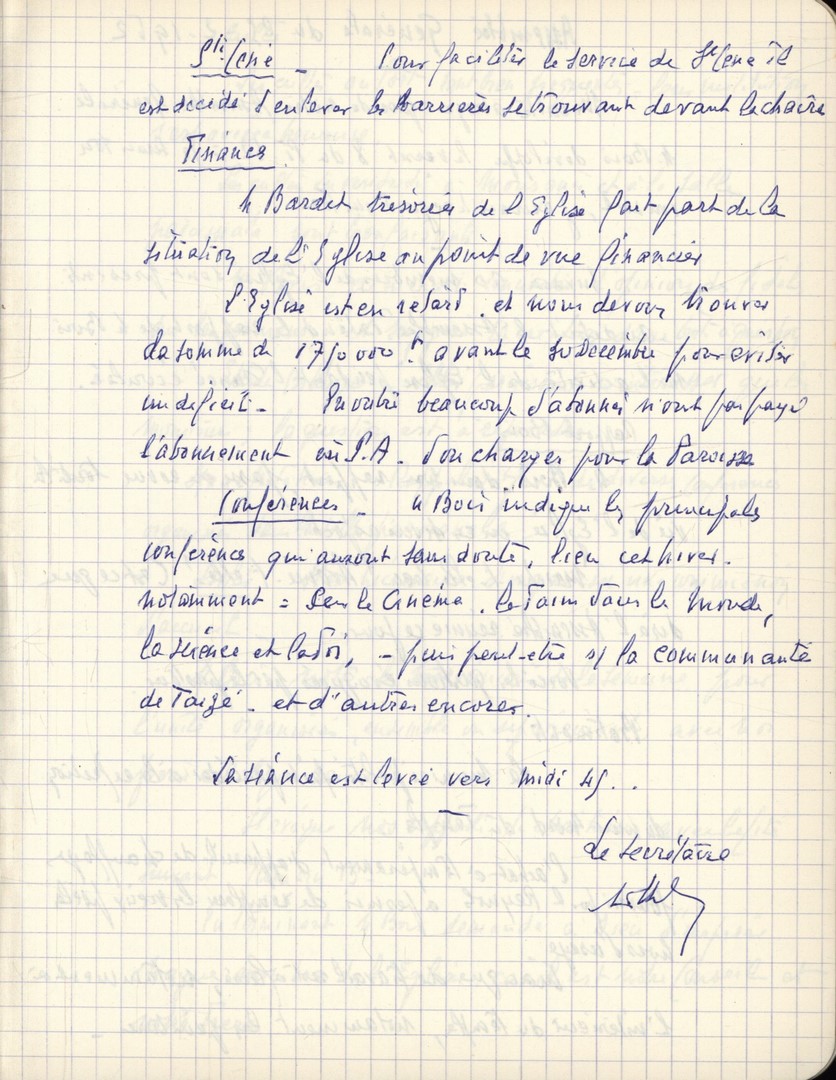 Ste Cène - Pour faciliter le service de Ste Cène il
est décidé d'enlever les barrières se trouvant devant la chaire
Finances.
M Bardet trésorier de l'Eglise fait part de la
situation de l'Eglise au point de vue financier
l'Eglise est en retard. et nous devons trouver
la somme de avant le 30 Décembre pour éviter
un déficit - En outre beaucoup d'abonnés n'ont pas payé
l'abonnement au P.A. d'ou charges pour la Paroisse
Conférences - M Bois indique les principales
conférences qui auront sans doute, lieu cet hiver.
notamment = Sur le Cinéma. la Faim dans le Monde,
la science et la foi, - puis peut-être s/ la communauté
de Taizé. et d'autres encores.
La séance est levée vers midi 45..
Le secrétaire